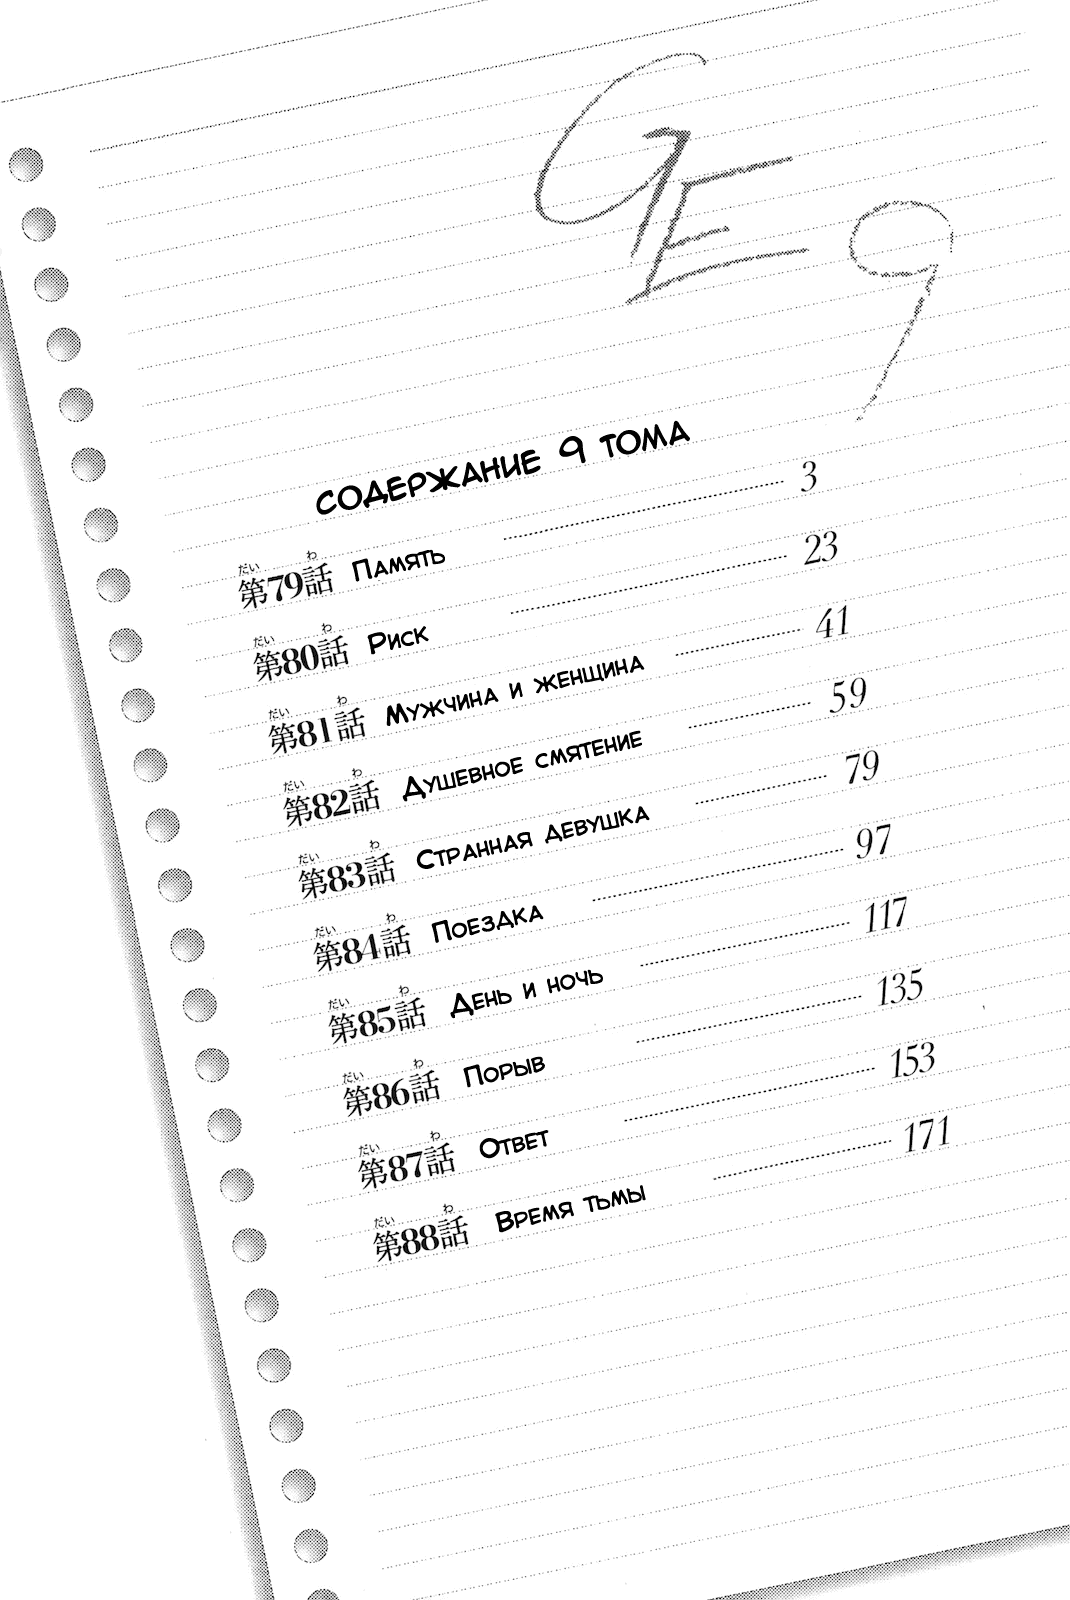 GE 9
СОДЕРЖАНИЕ 9 ТОМА
第79話 Память 3
第80話 Риск 23
第81話 Мужчина и женщина 41
第82話 Душевное смятение 59
第83話 Странная девушка 79
第84話 Поездка 97
第85話 День и ночь 117
第86話 Порыв 135
第87話 Ответ 153
第88話 Время тьмы 171